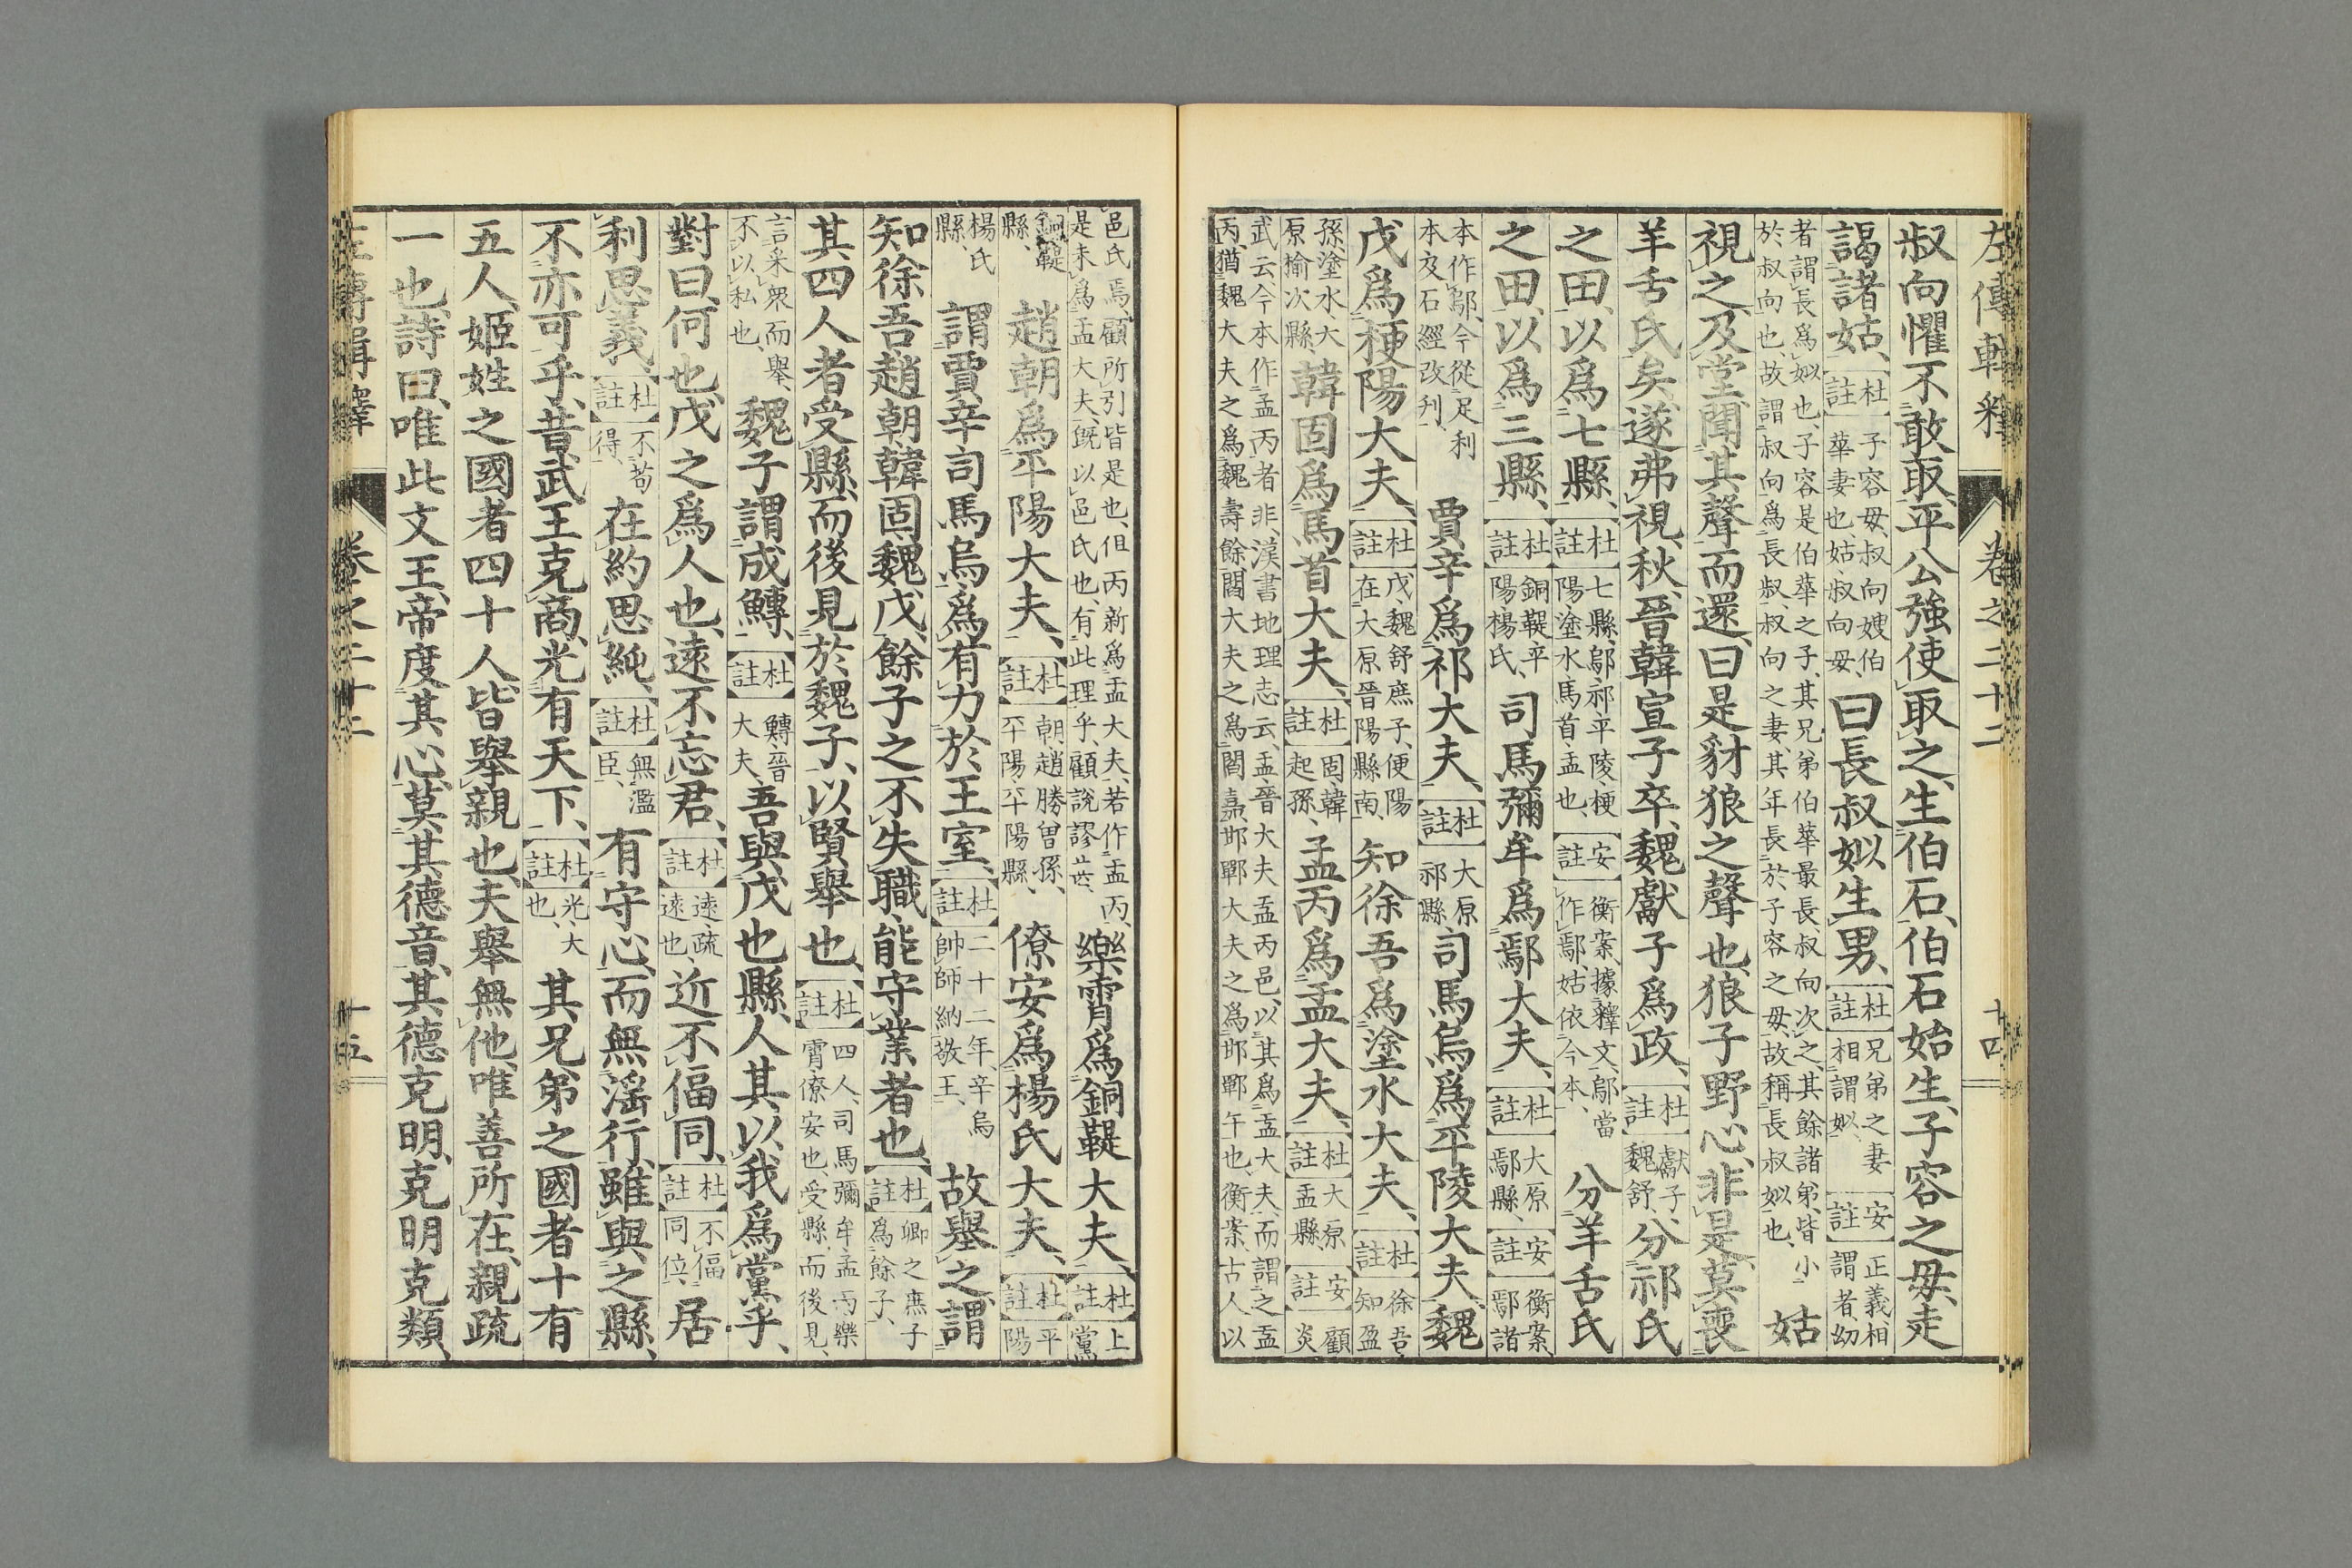 左傳輯釋 卷之二十二 十四
叔向懼不敢取、平公強使取之、生伯石、伯石始生、子容之母、走
謁諸姑、杜註子容母、叔向嫂伯華妻也、姑叔向母、曰長叔姒生男、杜註兄弟之妻相謂姒、安註正義、相謂者、幼
者謂長爲姒也、子容是伯華之子、其兄弟伯華最長、叔向次之、其餘諸弟、皆小於叔向也、故謂叔向爲長叔、叔向之妻、其年長於子容之母、故稱長叔姒也、姑
視之、及堂聞其聲而還、曰是豺狼之聲也、狼子野心、非是莫喪
羊舌氏矣、遂弗視、秋、晉韓宣子卒、魏獻子爲政、杜註獻子魏舒、分祁氏
之田、以爲七縣、杜註七縣、鄔、祁平陵、梗陽、塗水、馬首、盂也、安註衡案、據釋文、鄔當作鄢、姑依今本、分羊舌氏
之田、以爲三縣、杜註銅鞮、平陽、楊氏、司馬彌牟爲鄢大夫、杜註大原鄢縣、安註衡案、鄢諸
本作鄔、今從足利本及石經改刋、賈辛爲祁大夫、杜註大原祁縣、司馬烏爲平陵大夫、魏
戊爲梗陽大夫、杜註戊、魏舒庶子、便陽在大原晉陽縣南、知徐吾爲塗水大夫、杜註徐吾、知盈
孫、塗水、大原榆次縣、韓固爲馬首大夫、杜註固、韓起孫、孟丙爲盂大夫、杜註大原盂縣、安註顧炎
武云、今本作孟丙者非、漢書地理志云、盂、晉大夫盂丙邑、以其爲盂大夫、而謂之盂丙、猶魏大夫之爲魏壽餘閻大夫之爲閻嘉、邯鄲大夫之爲邯鄲午也、衡案、古人以
邑氏焉、顧所引皆是也、但丙新爲盂大夫、若作盂丙、是未爲盂大夫、既以邑氏也、有此理乎、顧說謬此、樂霄爲銅鞮大夫、杜註上黨
銅鞮縣、趙朝爲平陽大夫、杜註朝、趙勝曾孫、平陽、平陽縣、僚安爲楊氏大夫、杜註平陽
楊氏縣、謂賈辛司馬烏、爲有力於王室、杜註二十二年、辛烏帥師納敬王、故舉之、謂
知徐吾趙朝、韓固魏戊、餘子之不失職、能守業者也、杜註卿之庶子爲餘子、
其四人者、受縣、而後見於魏子、以賢舉也、杜註四人、司馬彌牟、孟丙樂霄僚安也、受縣、而後見、
言采衆而舉、不以私也、魏子謂成鱄、杜註鱄、晉大夫、吾與戊也縣、人其以我爲黨乎、
對曰、何也、戊之爲人也、遠不忘君、杜註遠、疏遠也、近不偪同、杜註不偪同位、居
利思義、杜註不苟得、在約思純、杜註無濫臣、有守心、而無淫行、雖與之縣、
不亦可乎、昔武王克商、光有天下、杜註光、大也、其兄弟之國者十有
五人、姬姓之國者四十人、皆舉親也、夫舉無他、唯善所在、親疏
一也、詩曰、唯此文王、帝度其心、莫其德音、其德克明、克明克類、
左傳輯釋 卷之二十二 十五